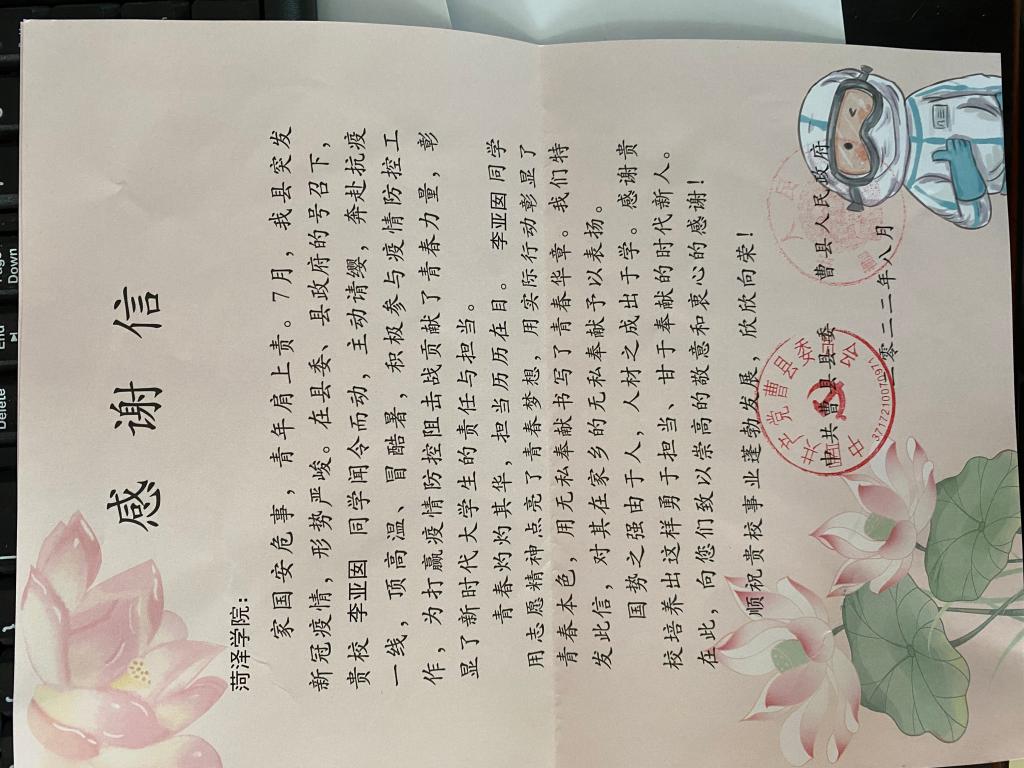 感谢信
菏泽学院：
家国安危事，青年肩上责。7月，我县突发
新冠疫情，形势严峻。在县委、县政府的号召下，
贵校 李亚囡 同学闻令而动，主动请缨，奔赴抗疫
一线，顶高温、冒酷暑，积极参与疫情防控工
作，为打赢疫情防控阻击战贡献了青春力量，彰
显了新时代大学生的责任与担当。
青春灼灼其华，担当历历在目。 李亚囡 同学
用志愿精神点亮了青春梦想，用实际行动彰显了
青春本色，用无私奉献书写了青春华章。我们特
发此信，对其在家乡的无私奉献予以表扬。
国势之强由于人，人材之成出于学。感谢贵
校培养出这样勇于担当、甘于奉献的时代新人。
在此，向您们致以崇高的敬意和衷心的感谢！
顺祝贵校事业蓬勃发展，欣欣向荣！
中共曹县县委 曹县人民政府
二零二二年八月
Delete
End
Page
Down